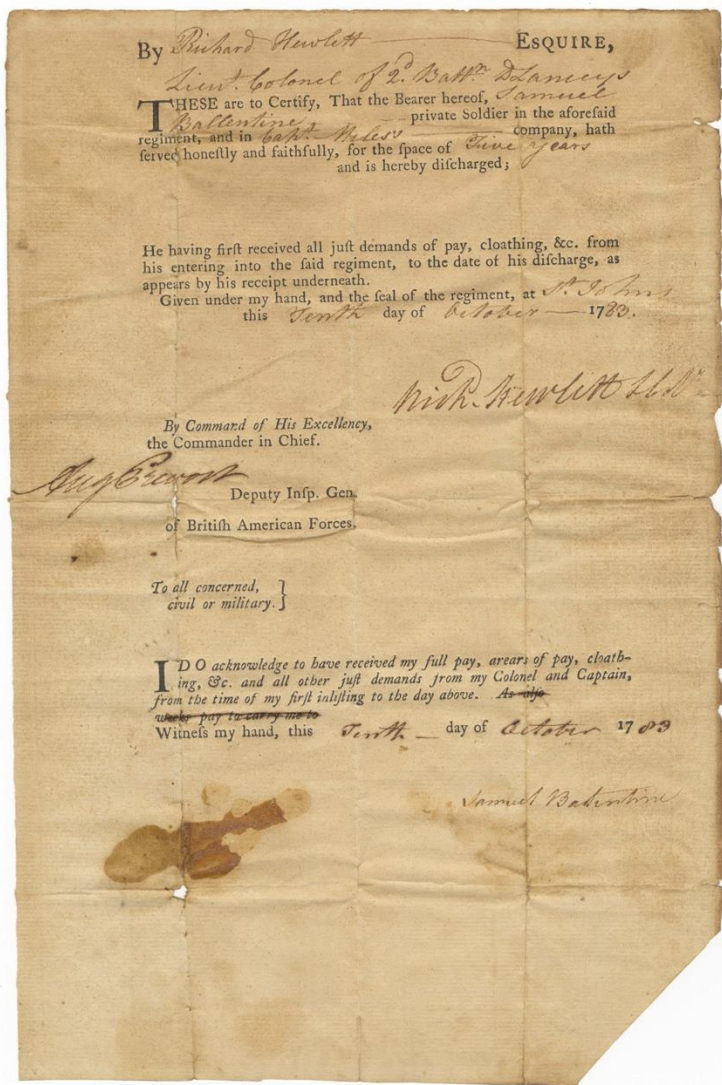 By Richard Hewlett ESQUIRE,
Lieut. Colonel of 2d. Battn DLanceys
THESE are to Certify, That the Bearer hereof, Samuel
Ballentine private Soldier in the aforeſaid
regiment, and in Capt. company, hath
ſerved honeſtly and faithfully, for the ſpace of Five years
and is hereby diſcharged;
He having firſt received all juſt demands of pay, cloathing, &c. from
his entering into the ſaid regiment, to the date of his diſcharge, as
appears by his receipt underneath.
Given under my hand, and the ſeal of the regiment, at St. Johns
this Tenth day of October — 1783.
Richd. Hewlett
By Command of His Excellency,
the Commander in Chief.
Aug Prevost
Deputy Inſp. Gen.
of Britiſh American Forces.
To all concerned, }
civil or military.
I DO acknowledge to have received my full pay, arears of pay, cloath-
ing, &c. and all other juſt demands from my Colonel and Captain,
from the time of my firſt inliſting to the day above. As alſo
weeks pay to carry me to
Witneſs my hand, this Tenth — day of October 1783
Samuel Balentine